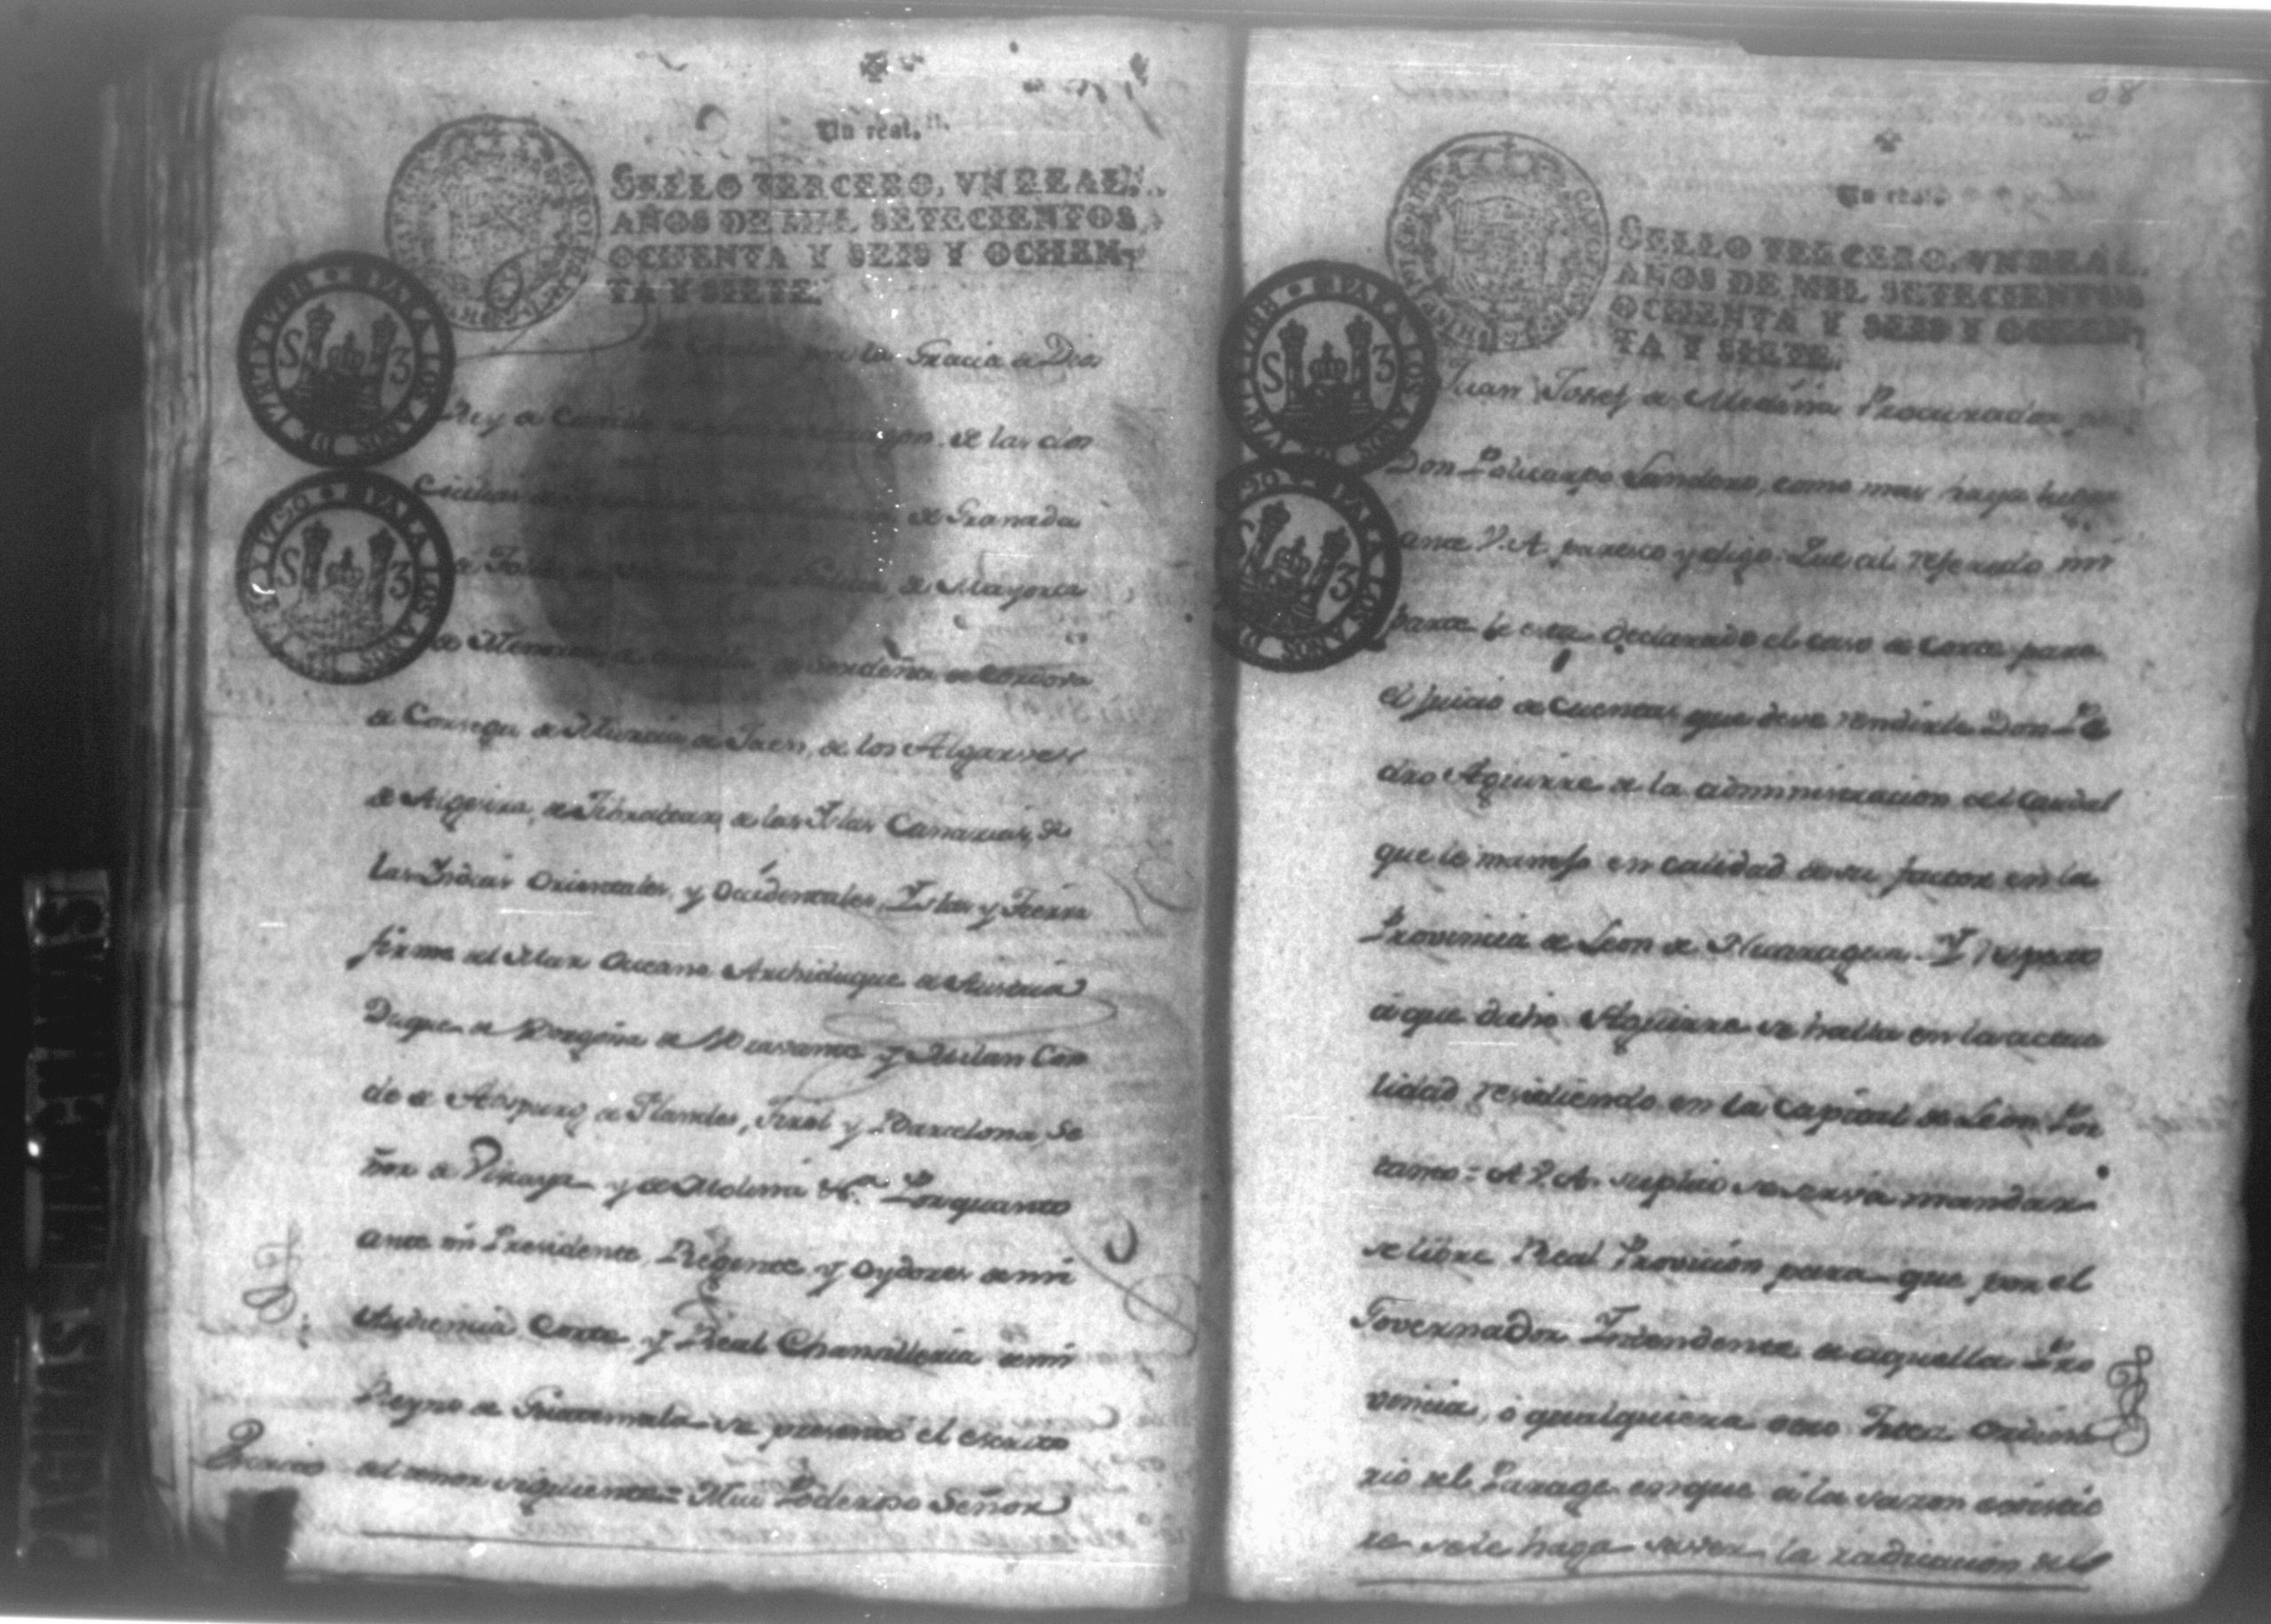 Un real.
SELLO TERCERO, VN REAL,
AÑOS DE MIL SETECIENTOS
OCHENTA Y SEIS Y OCHEN-
TA Y SIETE.
PARA LOS AÑOS DE
S 3
PARA LOS AÑOS DE
S 3
Carlos por la Gracia de Dios
Rey de Castilla de Leon de Aragon de las dos
Cicilias de Granada
de Toledo de Valencia de Galicia, de Mayorca
de Menorca, de Sevilla de Serdeña de Cordova
de Corsega de Murcia, de Jaen, de los Algarves
de Algecira, de Gibraltar, de las Yslas Canarias, de
las Yndias Orientales, y Occidentales, Yslas y Tierra
firme del Mar Occeano Archiduque de Austria
Duque de Borgoña de Bravante y Milan Con
de de Abspurg de Flandes, Tirol y Barcelona, Se
ñor de Viscaya y de Molina &a. Por quanto
ante mi Presidente Regente y Oydores de mi
Audiencia Corte y Real Chansilleria de mi
Reyno de Guatemala se presentó el escrito
Escrito del tenor siguiente = Mui Poderoso Señor
08
Un real.
SELLO TERCERO, VN REAL,
AÑOS DE MIL SETECIENTOS
OCHENTA Y SEIS Y OCHEN-
TA Y SIETE.
PARA LOS AÑOS DE
S 3
PARA LOS AÑOS DE
S 3
Juan Josef de Medina Procurador
Don Policarpo Sandoval, como mas haya lugar
ante V. A. paresco y digo: Que al referido mi
parte le esta declarado el caso de Corte para
el juicio de cuentas que deve rendirle Don Pe
dro Aguirre de la administracion del caudal
que le manejo en calidad de su factor en la
Provincia de Leon de Nicaragua. Y respecto
á que dicho Aguirre se halla en la actua
lidad residiendo en la Capital de Leon Por
tanto = A V. A. suplico se sirva mandar
se libre Real Provicion para que por el
Governador Yntendente de aquella Pro
vincia, ó qualquiera otro Juez ordina
rio del Parage en que á la sazon existie
re se le haga saver la radicacion del